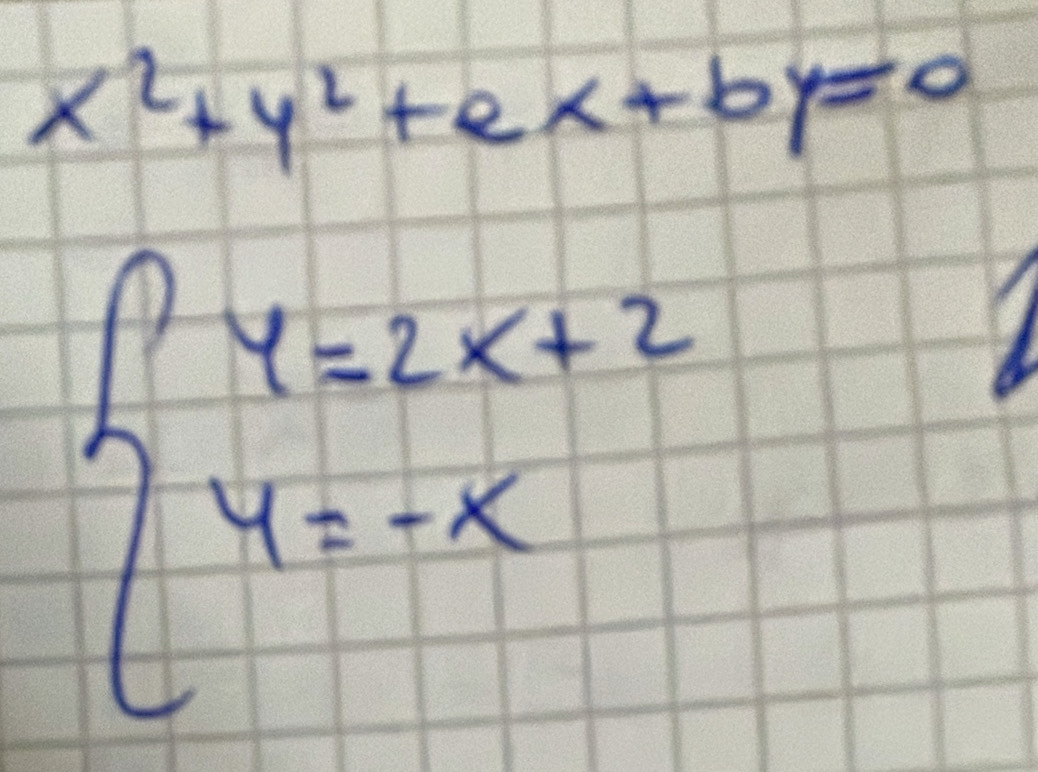 x²+y²+ax+by=0
y=2x+2
y=-x